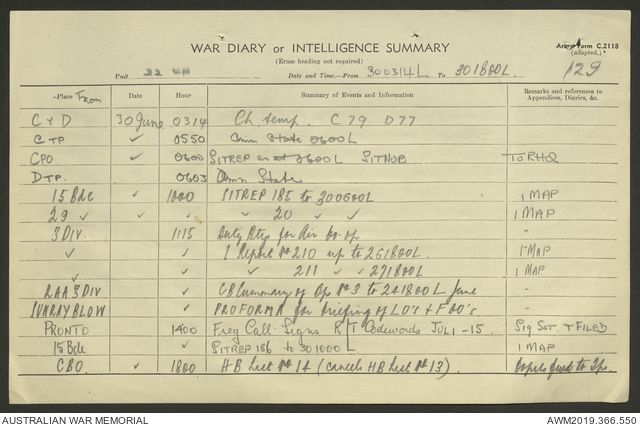 WAR DIARY or INTELLIGENCE SUMMARY
Army Form C.2118
(Erase heading not required)
(adapted.)
129
Unit 22 Date and Time.—From 300314L To 301800L.
Place From Date Hour Summary of Events and Information Remarks and references to Appendices, Diaries, &c.
C & D 30 June 0314 Ch temp. C 79 D 77
C TP ✓ 0550 Comm State 0600L
CPO ✓ 0600 SITREP as at 0600L SITNUB To RHQ
DTP. 0603 Comm State
15 Bde ✓ 1000 SITREP 185 to 300600L 1 MAP
29 ✓ ✓ ✓ ✓ 20 ✓ ✓ 1 MAP
3 DIV. 1115 Duty Otg for Air co-op –
✓ ✓ I Report No 210 up to 261800L 1 MAP
✓ ✓ ✓ 211 ✓ ✓ 271800L 1 MAP
RAA 3 DIV ✓ CB Summary of Op No 3 to 241800L June –
SUNRAY BLOW ✓ PROFORMA for briefing of LO's & FOO's. –
PRONTO 1400 Freq Call Signs R/T Codewords JUL 1-15. Sig Sgt. & FILED
15 Bde ✓ SITREP 186 to 301000L 1 MAP
CBO ✓ 1800 HB List No 14 (cancels HB List No 13) Copies fwd to
AUSTRALIAN WAR MEMORIAL
AWM2019.366.550